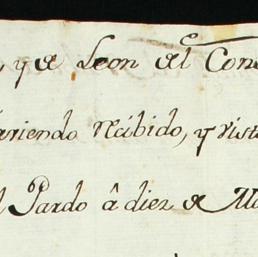 , y de Leon al Cons
ariendo recibido, y vist
l Pardo â diez de Ma